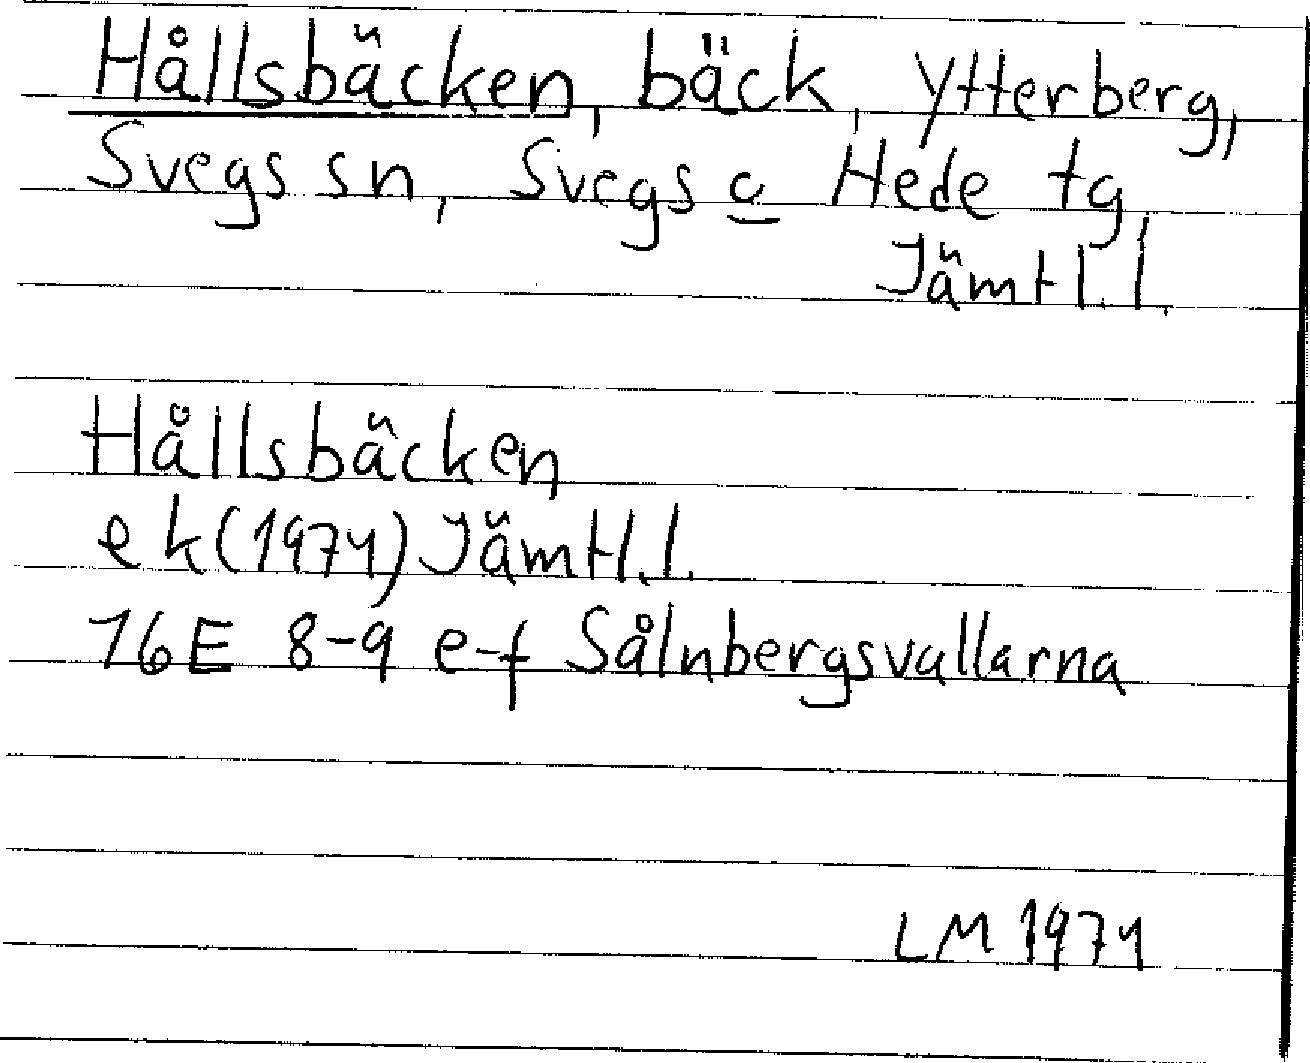 Hållsbäcken, bäck, Ytterberg,
Svegs sn, Svegs o Hede tg,
Jämtl. l.
Hållsbäcken
ek (1971) Jämtl. l.
16E 8-9 e-f Sålnbergsvallarna
LM 1971